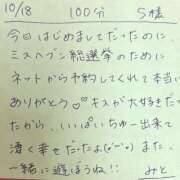 10/18 100分 S様
今日はじめましてだったのに、
ミスヘブン総選挙のために
ネットから予約してくれて本当に
ありがとう♡♡キスが大好きだっ
たから、いっぱいちゅー出来て
凄く幸せだったよ(
)また、
一緒に遊ぼうね!! みと